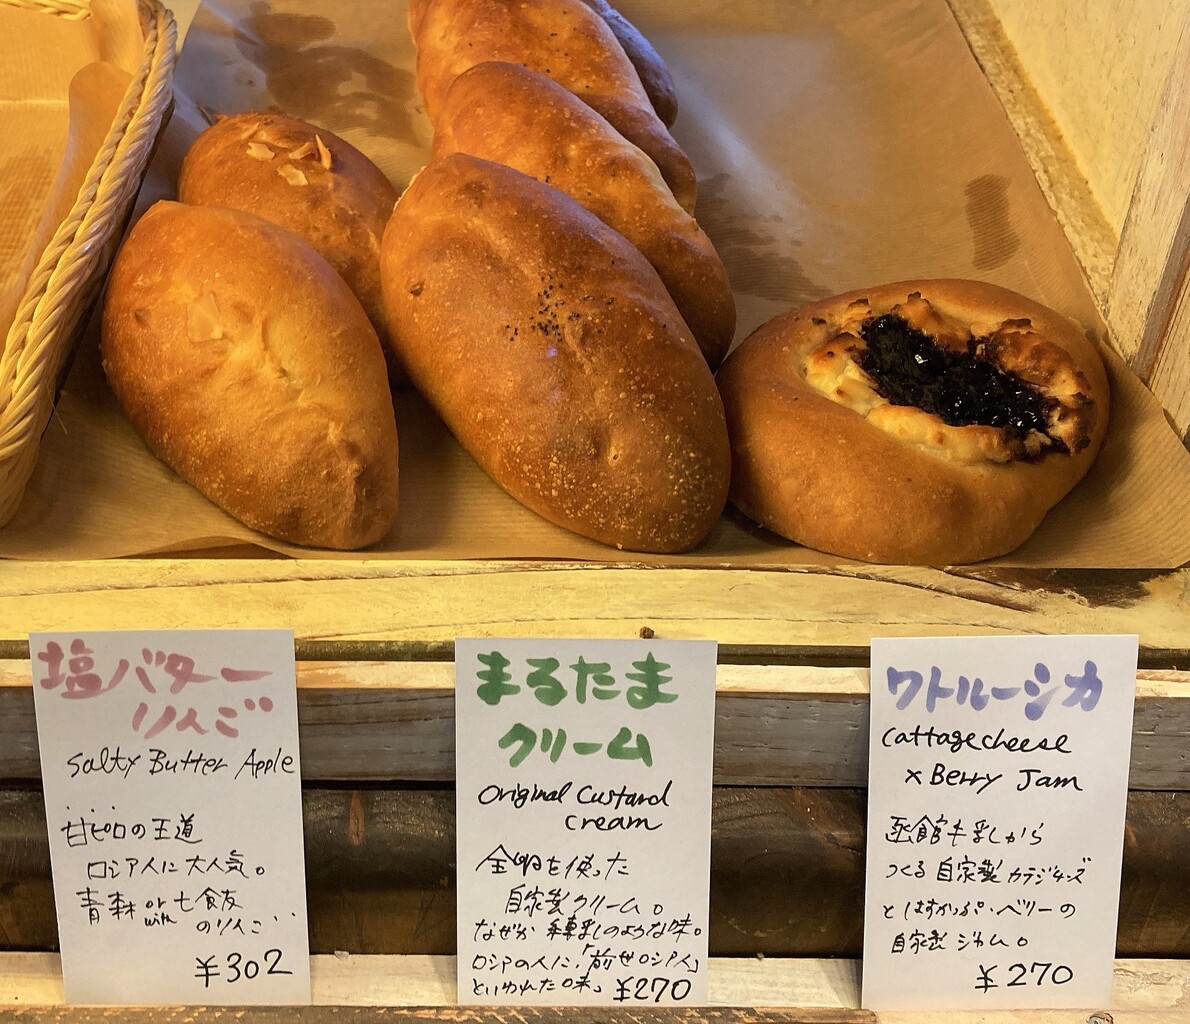 塩バター
りんご
Salty Butter Apple
甘ピロの王道
ロシア人に大人気。
青森 or 七飯
with のりんご
¥302
まるたま
クリーム
Original Custard
cream
全卵を使った
自家製クリーム。
なぜか練乳のような味。
ロシアの人に、「前世ロシア人」
といわれた味。 ¥270
ワトルーシカ
Cottage cheese
x Berry Jam
函館牛乳から
つくる自家製カテージチーズ
とはすかっぷ・ベリーの
自家製ジャム。
¥270